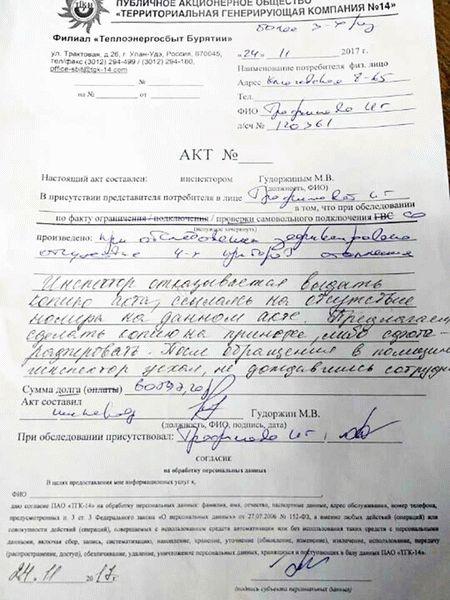 ТГК
ПУБЛИЧНОЕ АКЦИОНЕРНОЕ ОБЩЕСТВО
«ТЕРРИТОРИАЛЬНАЯ ГЕНЕРИРУЮЩАЯ КОМПАНИЯ №14»
более 3-х
Филиал «Теплоэнергосбыт Бурятии»
ул. Трактовая, д.26, г. Улан-Удэ, Россия, 670045,
тел/факс (3012) 294-499 / (3012) 294-160,
office-sbit@tgk-14.com
«24» 11 2017 г.
Наименование потребителя физ. лицо
Адрес 8-65
ФИО Трофимова
л/сч № 120361
№
на № от
АКТ №
Настоящий акт составлен: инспектором Гудоржиным М.В.
(должность, ФИО)
В присутствии представителя потребителя в лице Трофимовой
в том, что при обследовании
по факту ограничения / подключения / проверки самовольного подключения ГВС СО
(ненужное зачеркнуть)
произведено: при обследовании зафиксировано
отсутствие 4-х приборов отопления
Инспектор отказывается выдать
копию акта, ссылаясь на отсутствие
номера на данном акте. Предлагаем
сделать копию на принтере, либо сфото-
графировать. После обращения в полицию
инспектор уехал, не дождавшись сотрудн
Сумма долга (оплаты)
Акт составил
инспектор Гудоржин М.В.
(должность, ФИО, подпись, дата)
При обследовании присутствовал: Трофимова
СОГЛАСИЕ
на обработку персональных данных
В целях предоставления мне информационных услуг я,
ФИО
даю согласие ПАО «ТГК-14» на обработку персональных данных: фамилия, имя, отчество, паспортные данные, адрес обслуживания, номер телефона,
предусмотренных п. 3 ст. 3 Федерального закона «О персональных данных» от 27.07.2006 № 152-ФЗ, а именно любых действий (операций) или
совокупности действий (операций), совершаемых с использованием средств автоматизации или без использования таких средств с персональными
данными, включая сбор, запись, систематизацию, накопление, хранение, уточнение (обновление, изменение), извлечение, использование, передачу
(распространение, доступ), обезличивание, удаление, уничтожение персональных данных, хранящихся и поступающих в базу данных ПАО «ТГК-14».
24.11 2017 г.
(подпись субъекта персональных данных)